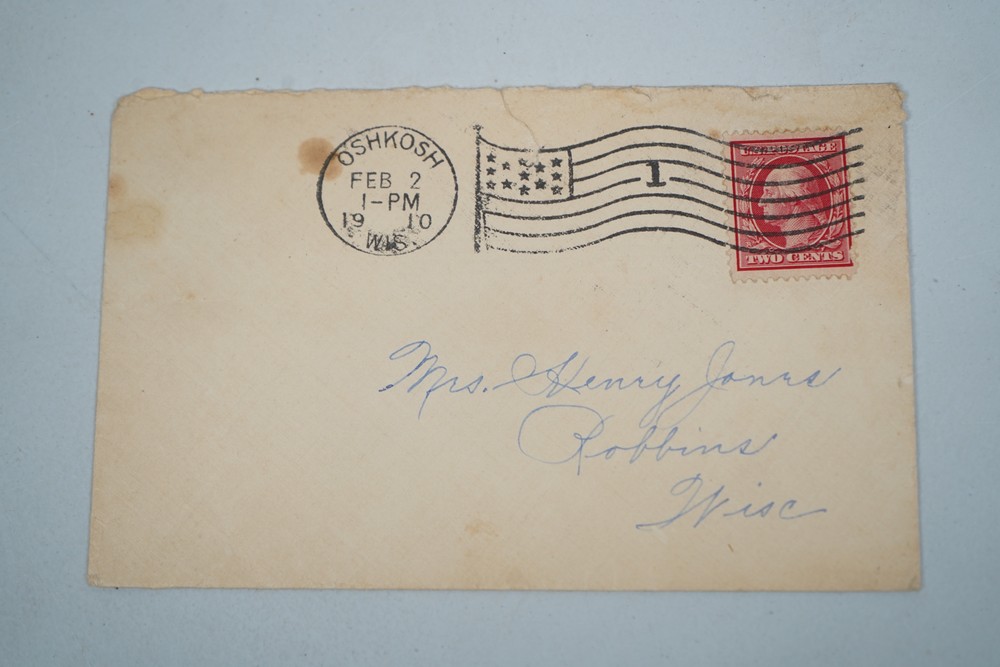 OSHKOSH
FEB 2
1-PM
19 10
WIS.
1
U.S. POSTAGE
TWO CENTS
Mrs. Henry Jones
Robbins
Wisc